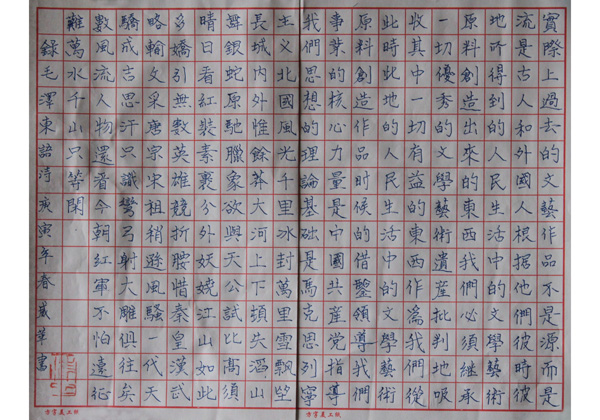 實際上過去的文藝作品不是源而是
流是古人和外國人根據他們彼時彼
地所得到的人民生活中的文學藝術
原料創造出來的東西我們必須繼承
一切優秀的文學藝術遺產批判地吸
收其中一切有益的東西作爲我們從
此時此地的人民生活中的文學藝術
原料創造作品時候的借鑒領導我們
事業的核心力量是中國共產黨指導
我們思想的理論基础是馬克思列寧
主义北國風光千里冰封萬里雪飄望
長城内外惟餘莽大河上下頓失滔山
舞銀蛇原馳臘象欲與天公試比高須
晴日看紅裝素裹分外妖嬈江山如此
多嬌引無數英雄競折腰惜秦皇漢武
略輸文采唐宗宋祖稍遜風騷一代天
驕成吉思汗只識彎弓射大雕俱往矣
數風流人物還看今朝紅軍不怕遠征
難萬水千山只等閑
錄毛澤東語詩庚寅年春盛華書